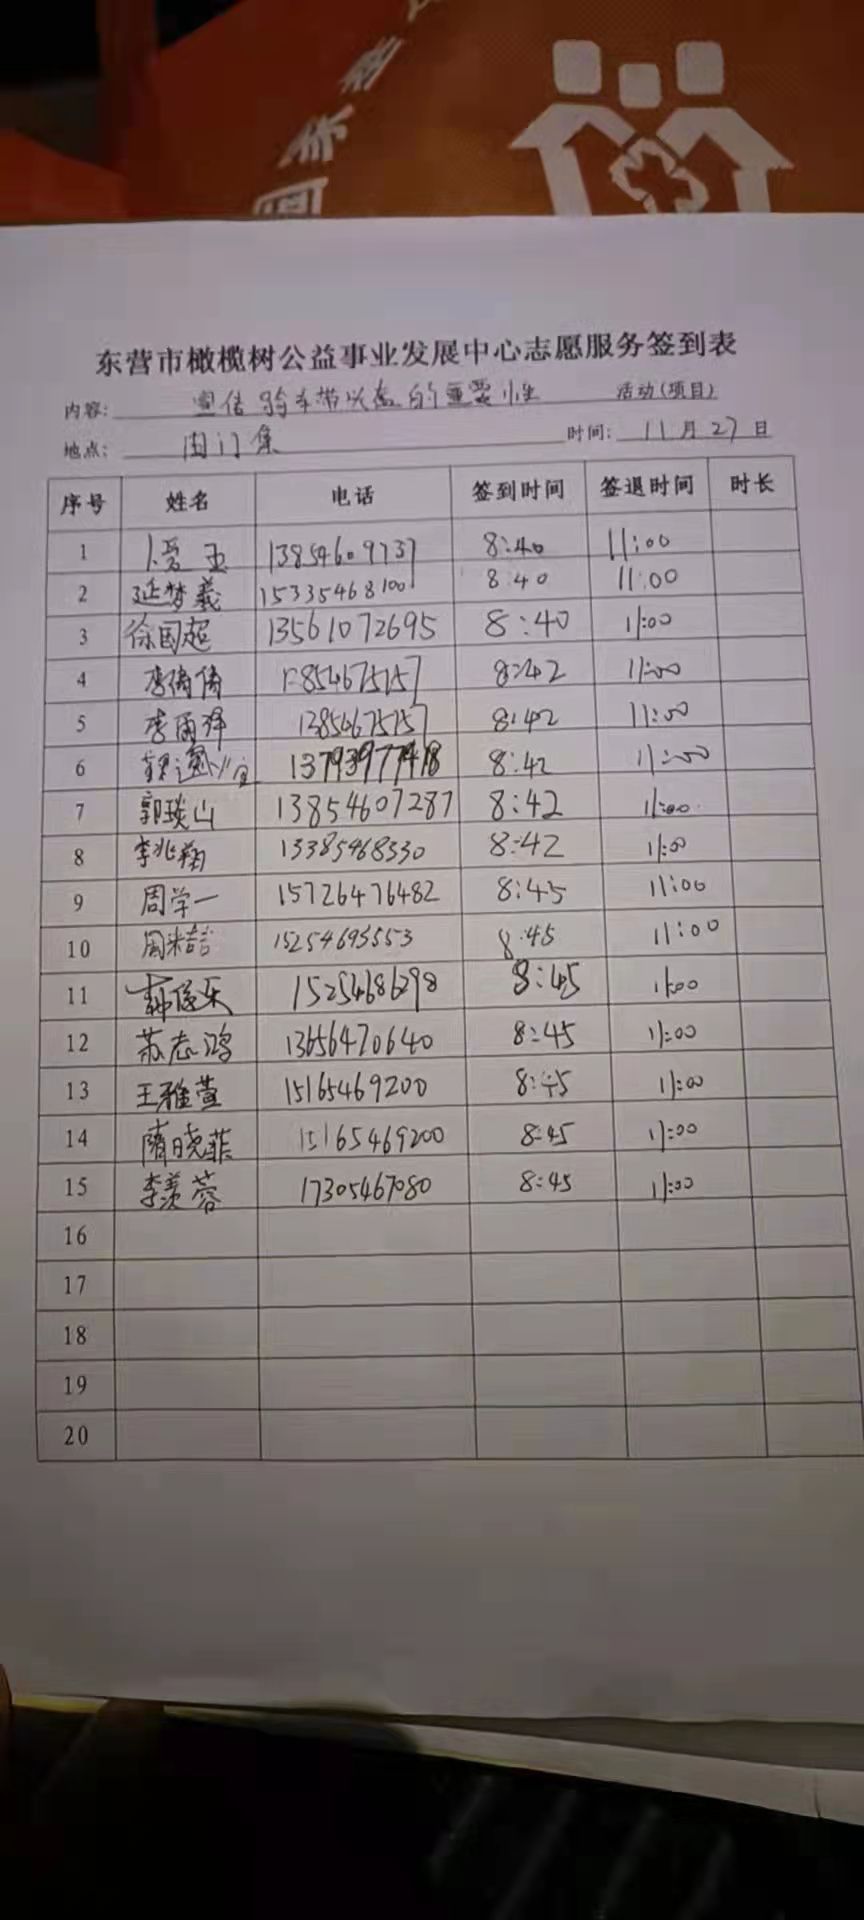 国家基
东营市橄榄树公益事业发展中心志愿服务签到表
内容: 宣传骑车带头盔的重要性 活动(项目)
地点: 西门集 时间: 11月27日
序号 姓名 电话 签到时间 签退时间 时长
1 13854609737 8:40 11:00
2 延梦义 15335468100 8:40 11:00
3 徐国超 13561072695 8:40 11:00
4 李倩倩 13854675157 8:42 11:00
5 李雨泽 13854675157 8:42 11:00
6 13793977418 8:42 11:00
7 郭琰山 13854607287 8:42 11:00
8 李兆翔 13385468330 8:42 11:00
9 周学一 15726476482 8:45 11:00
10 周米喆 15254695553 8:45 11:00
11 15254686298 8:45 11:00
12 苏志鸿 13656470640 8:45 11:00
13 王雅萱 15165469200 8:45 11:00
14 隋晓菲 15165469200 8:45 11:00
15 李羡蓉 17305467080 8:45 11:00
16
17
18
19
20